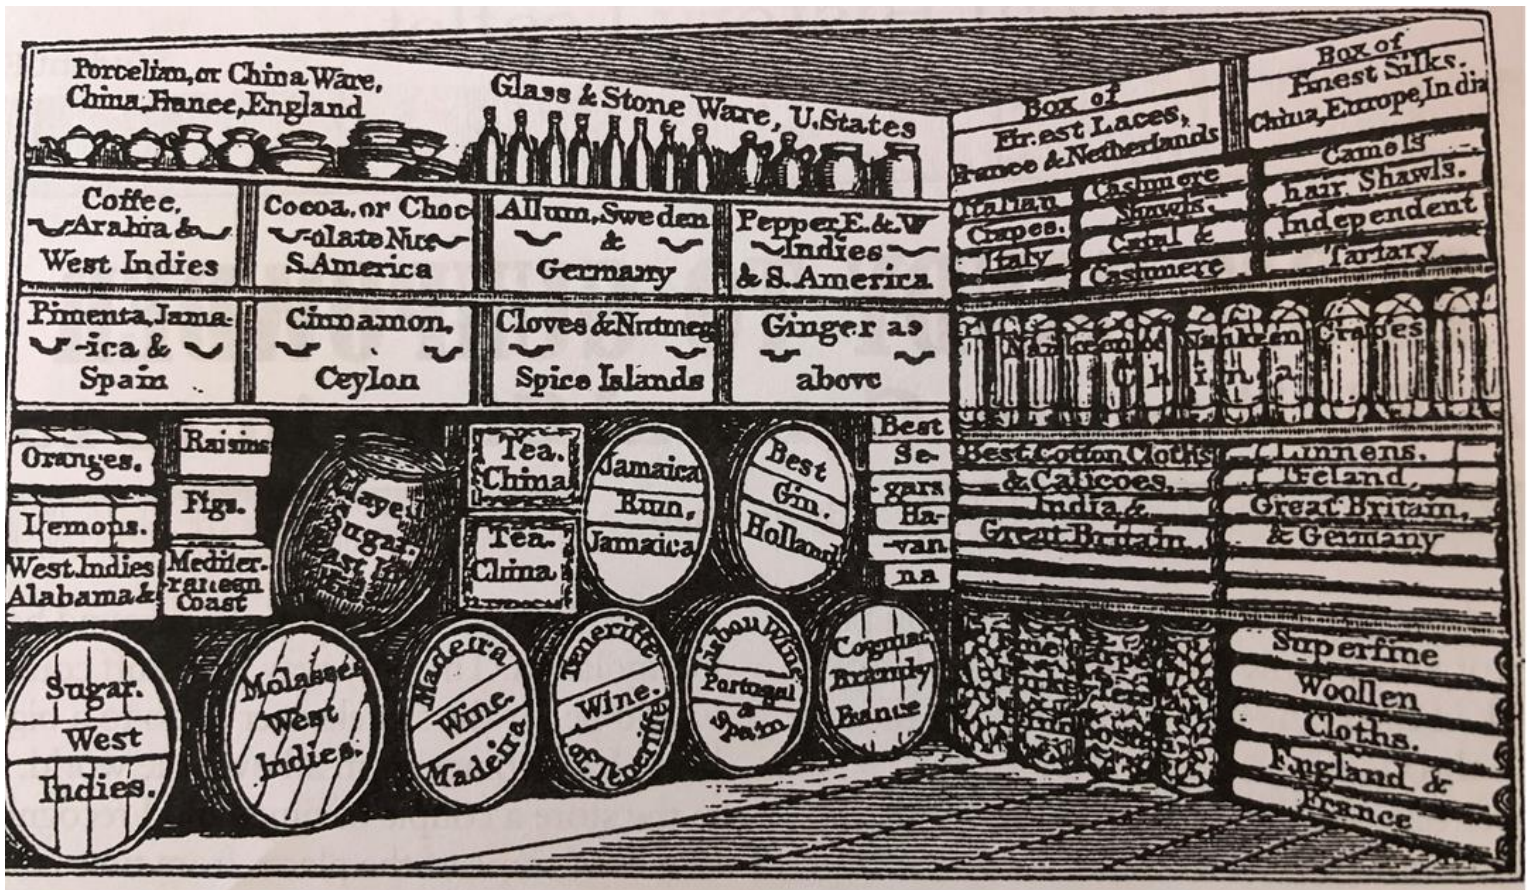 Porcelian, or China Ware,
China, France, England
Glass & Stone Ware, U.States
Box of
Finest Laces,
France & Netherlands
Box of
Finest Silks.
China, Europe, India
Coffee,
Arabia &
West Indies
Cocoa, or Choc-
-olate Nuts
S.America
Allum, Sweden
&
Germany
Pepper, E. & W
Indies
& S. America
Italian
Crapes.
Italy
Cashmere
Shawls.
Cabul &
Cashmere
Camels
hair Shawls.
Independent
Tartary
Pimenta, Jama-
-ica &
Spain
Cinnamon,
Ceylon
Cloves & Nutmeg
Spice Islands
Ginger as
above
Nankeen Crapes
China
Oranges.
Lemons.
West Indies
Alabama &
Raisins
Figs.
Mediter-
ranean
Coast
Sugar.
Tea.
China
Tea.
China
Jamaica
Rum,
Jamaica
Best
Gin.
Holland
Best
Se-
gars
Ha-
-van
na
Best Cotton Cloths
& Calicoes,
India &
Great Britain
Linnens.
Ireland
Great Britain,
& Germany
Sugar.
West
Indies.
Molasses
West
Indies.
Madeira
Wine.
Madeira
Teneriffe
Wine.
of Teneriffe
Lisbon Wine
Portugal
&
Spain
Cogniac
Brandy
France
Superfine
Woollen
Cloths.
England &
France